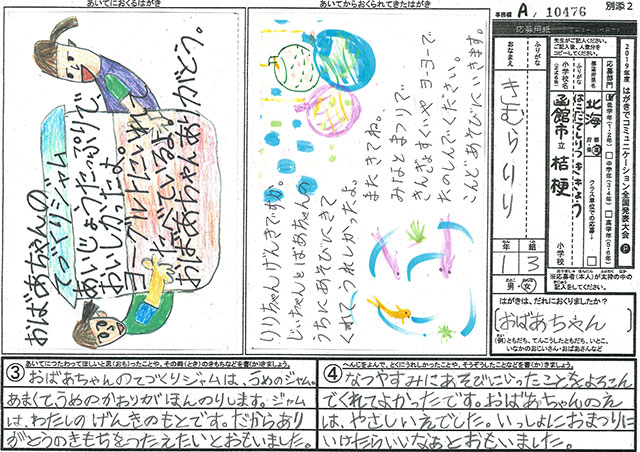 別添2
事務欄 A, 10476
応募用紙
2019年度 はがきでコミュニケーション全国発表大会
応募部門
低学年(1・2年)
中学年(3・4年)
高学年(5・6年)
クラス単位での応募
先生がご記入ください。
ご記入後、人数分を
コピーしてください。
都道府県名
北海
ふりがな
はこだてしりつききょう
小学校名
函館市立 桔梗
小学校
ふりがな
おなまえ
きむらりり
年 組
1 3
男・女
※応募者(本人)が太枠の中の
記入をしてください。
はがきは、だれにおくりましたか?
おばあちゃん
(例)ともだち、てんこうしたともだち、いとこ、
いなかのおじいさん・おばあさんなど
あいてからおくられてきたはがき
りりちゃんげんきですか。
じぃちゃんとばあちゃんの
うちにあそびにきて
くれてうれしかったよ。
またきてね。
みなとまつりで
きんぎょすくいやヨーヨーで
たのしんでください。
こんどあそびにいきます。
あいてにおくるはがき
おばあちゃんの
てづくりジャム
あいじょうたっぷりで
おいしかったよ。
ヨーグルトにいれて
たべているよ。
おばあちゃんありがとう。
③ あいてにつたわってほしいと思(おも)ったことや、その時(とき)のきもちなどを書(か)きましょう。
おばあちゃんのてづくりジャムは、うめのジャム。
あまくて、うめのかおりがほんのりします。ジャム
は、わたしのげんきのもとです。だからあり
がとうのきもちをつたえたいとおもいました。
④ へんじをよんで、とくにうれしかったことや、そうぞうしたことなどを書(か)きましょう。
なつやすみにあそびにいったことをよろこん
でくれてよかったです。おばあちゃんのえ
は、やさしいえでした。いっしょにおまつりに
いけたらいいなぁとおもいました。